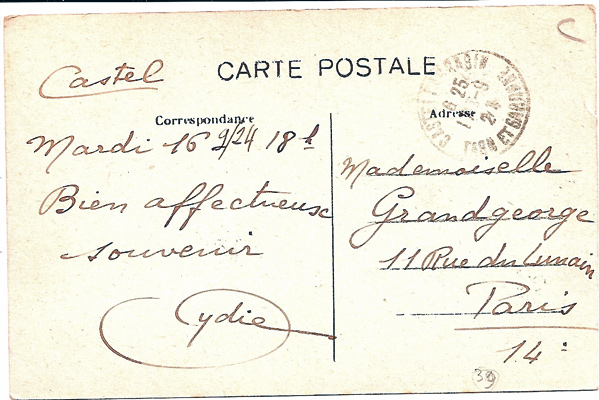 Castel
CARTE POSTALE
Correspondance
Adresse
TARN ET GARONNE
Mardi 16 9/24 18h
Bien affectueux
souvenir
Lydie
Mademoiselle
Grandgeorge
11 Rue du Lunain
Paris
14:
39